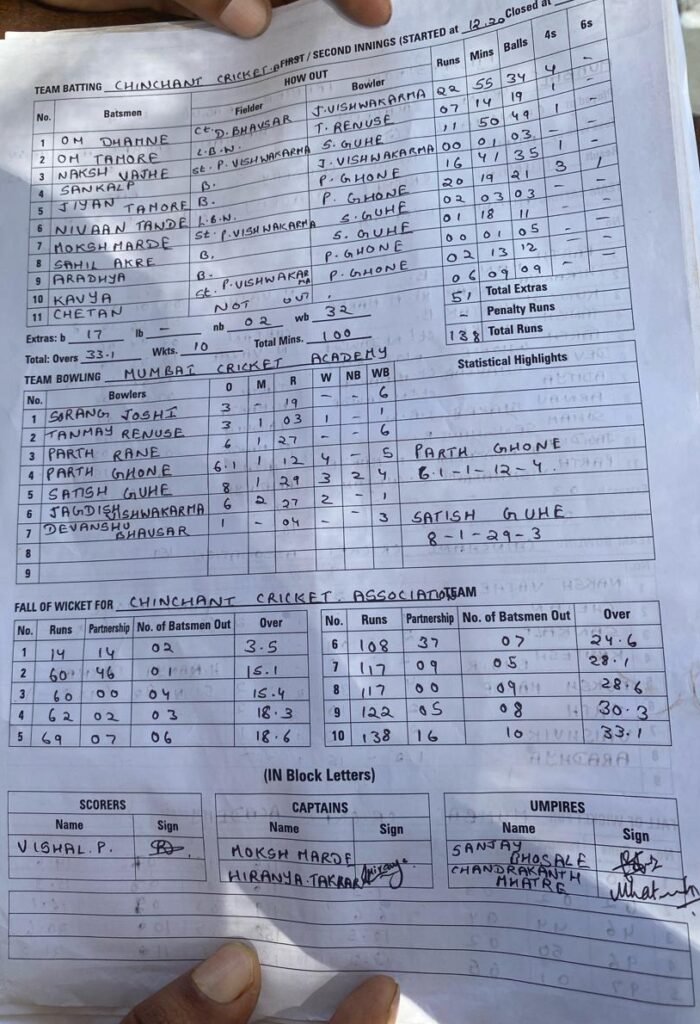 TEAM BATTING CHINCHANT CRICKET.A FIRST / SECOND INNINGS (STARTED at 12.20 Closed at
No. Batsmen HOW OUT Runs Mins Balls 4s 6s
Fielder Bowler
1 OM DHAMNE Ct. D. BHAVSAR J. VISHWAKARMA 22 55 34 4 -
2 OM TAMORE L.B.W. T. RENUSE 07 14 19 1 -
3 NAKSH VAJHE St. P. VISHWAKARMA S. GUHE 11 50 49 1 -
4 SANKALP B. J. VISHWAKARMA 00 01 03 - -
5 JIYAN TAMORE B. P. GHONE 16 41 35 1 -
6 NIVAAN TANDE L.B.W. P. GHONE 20 19 21 3 1
7 MOKSH MARDE St. P. VISHWAKARMA S. GUHE 02 03 03 - -
8 SAHIL AKRE B. S. GUHE 01 18 11 - -
9 ARADHYA B. P. GHONE 00 01 05 - -
10 KAVYA St. P. VISHWAKARMA P. GHONE 02 13 12 - -
11 CHETAN NOT OUT 06 09 09 - -
Extras: b 17 lb - nb 02 wb 32 51 Total Extras
- Penalty Runs
Total: Overs 33.1 Wkts. 10 Total Mins. 100 138 Total Runs
TEAM BOWLING MUMBAI CRICKET ACADEMY
No. Bowlers O M R W NB WB Statistical Highlights
1 SORANG JOSHI 3 - 19 - - 6
2 TANMAY RENUSE 3 1 03 1 - 1
3 PARTH RANE 6 1 27 - - 6
4 PARTH GHONE 6.1 1 12 4 - 5 PARTH GHONE
5 SATISH GUHE 8 1 29 3 2 4 6.1-1-12-4
6 JAGDISH VISHWAKARMA 6 2 27 2 - 1
7 DEVANSHU BHAVSAR 1 - 04 - - 3 SATISH GUHE
8 8-1-29-3
9
FALL OF WICKET FOR CHINCHANT CRICKET ASSOCIATION TEAM
No. Runs Partnership No. of Batsmen Out Over No. Runs Partnership No. of Batsmen Out Over
1 14 14 02 3.5 6 108 37 07 24.6
2 60 46 01 15.1 7 117 09 05 28.1
3 60 00 04 15.4 8 117 00 09 28.6
4 62 02 03 18.3 9 122 05 08 30.3
5 69 07 06 18.6 10 138 16 10 33.1
(IN Block Letters)
SCORERS CAPTAINS UMPIRES
Name Sign Name Sign Name Sign
VISHAL.P. MOKSH MARDE SANJAY BHOSALE
HIRANYA.TAKRAR CHANDRAKANTH MHATRE